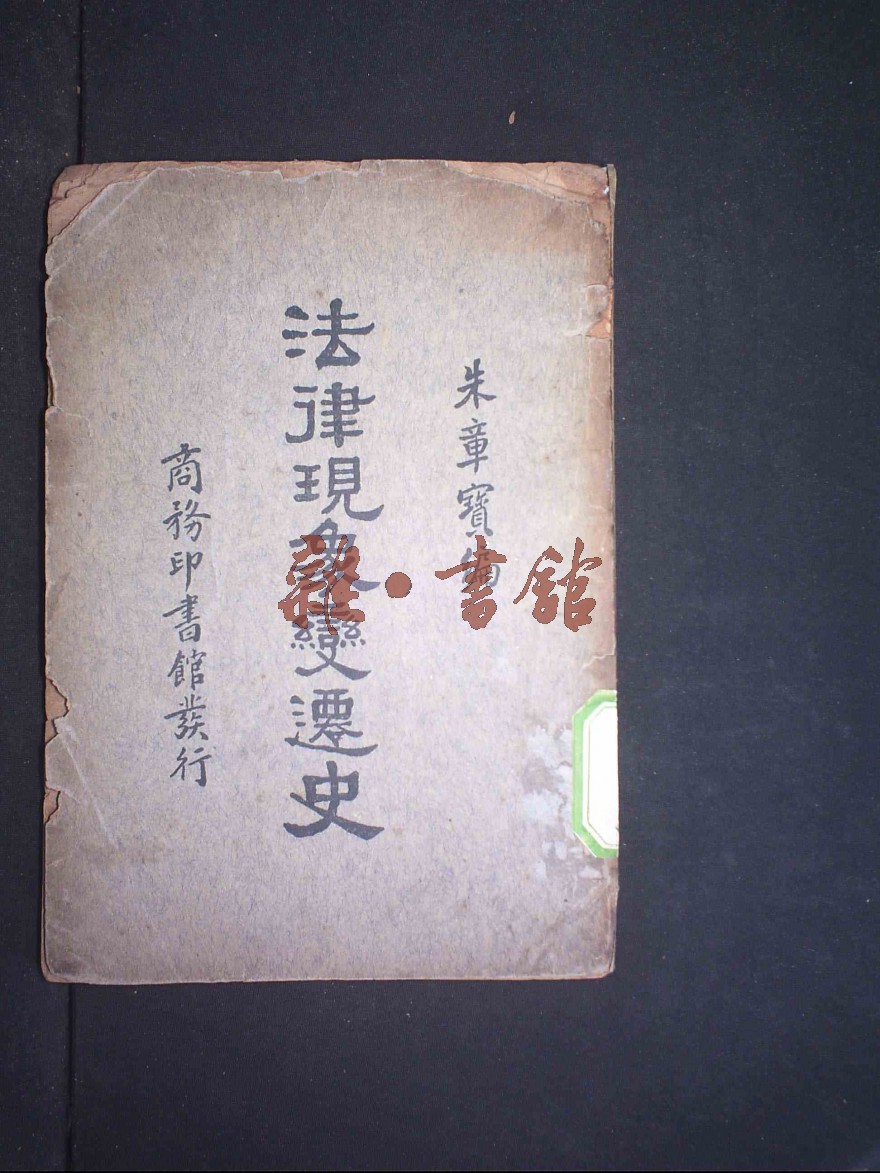 朱章寶編
法律現象變遷史
商務印書館發行
雜·書館